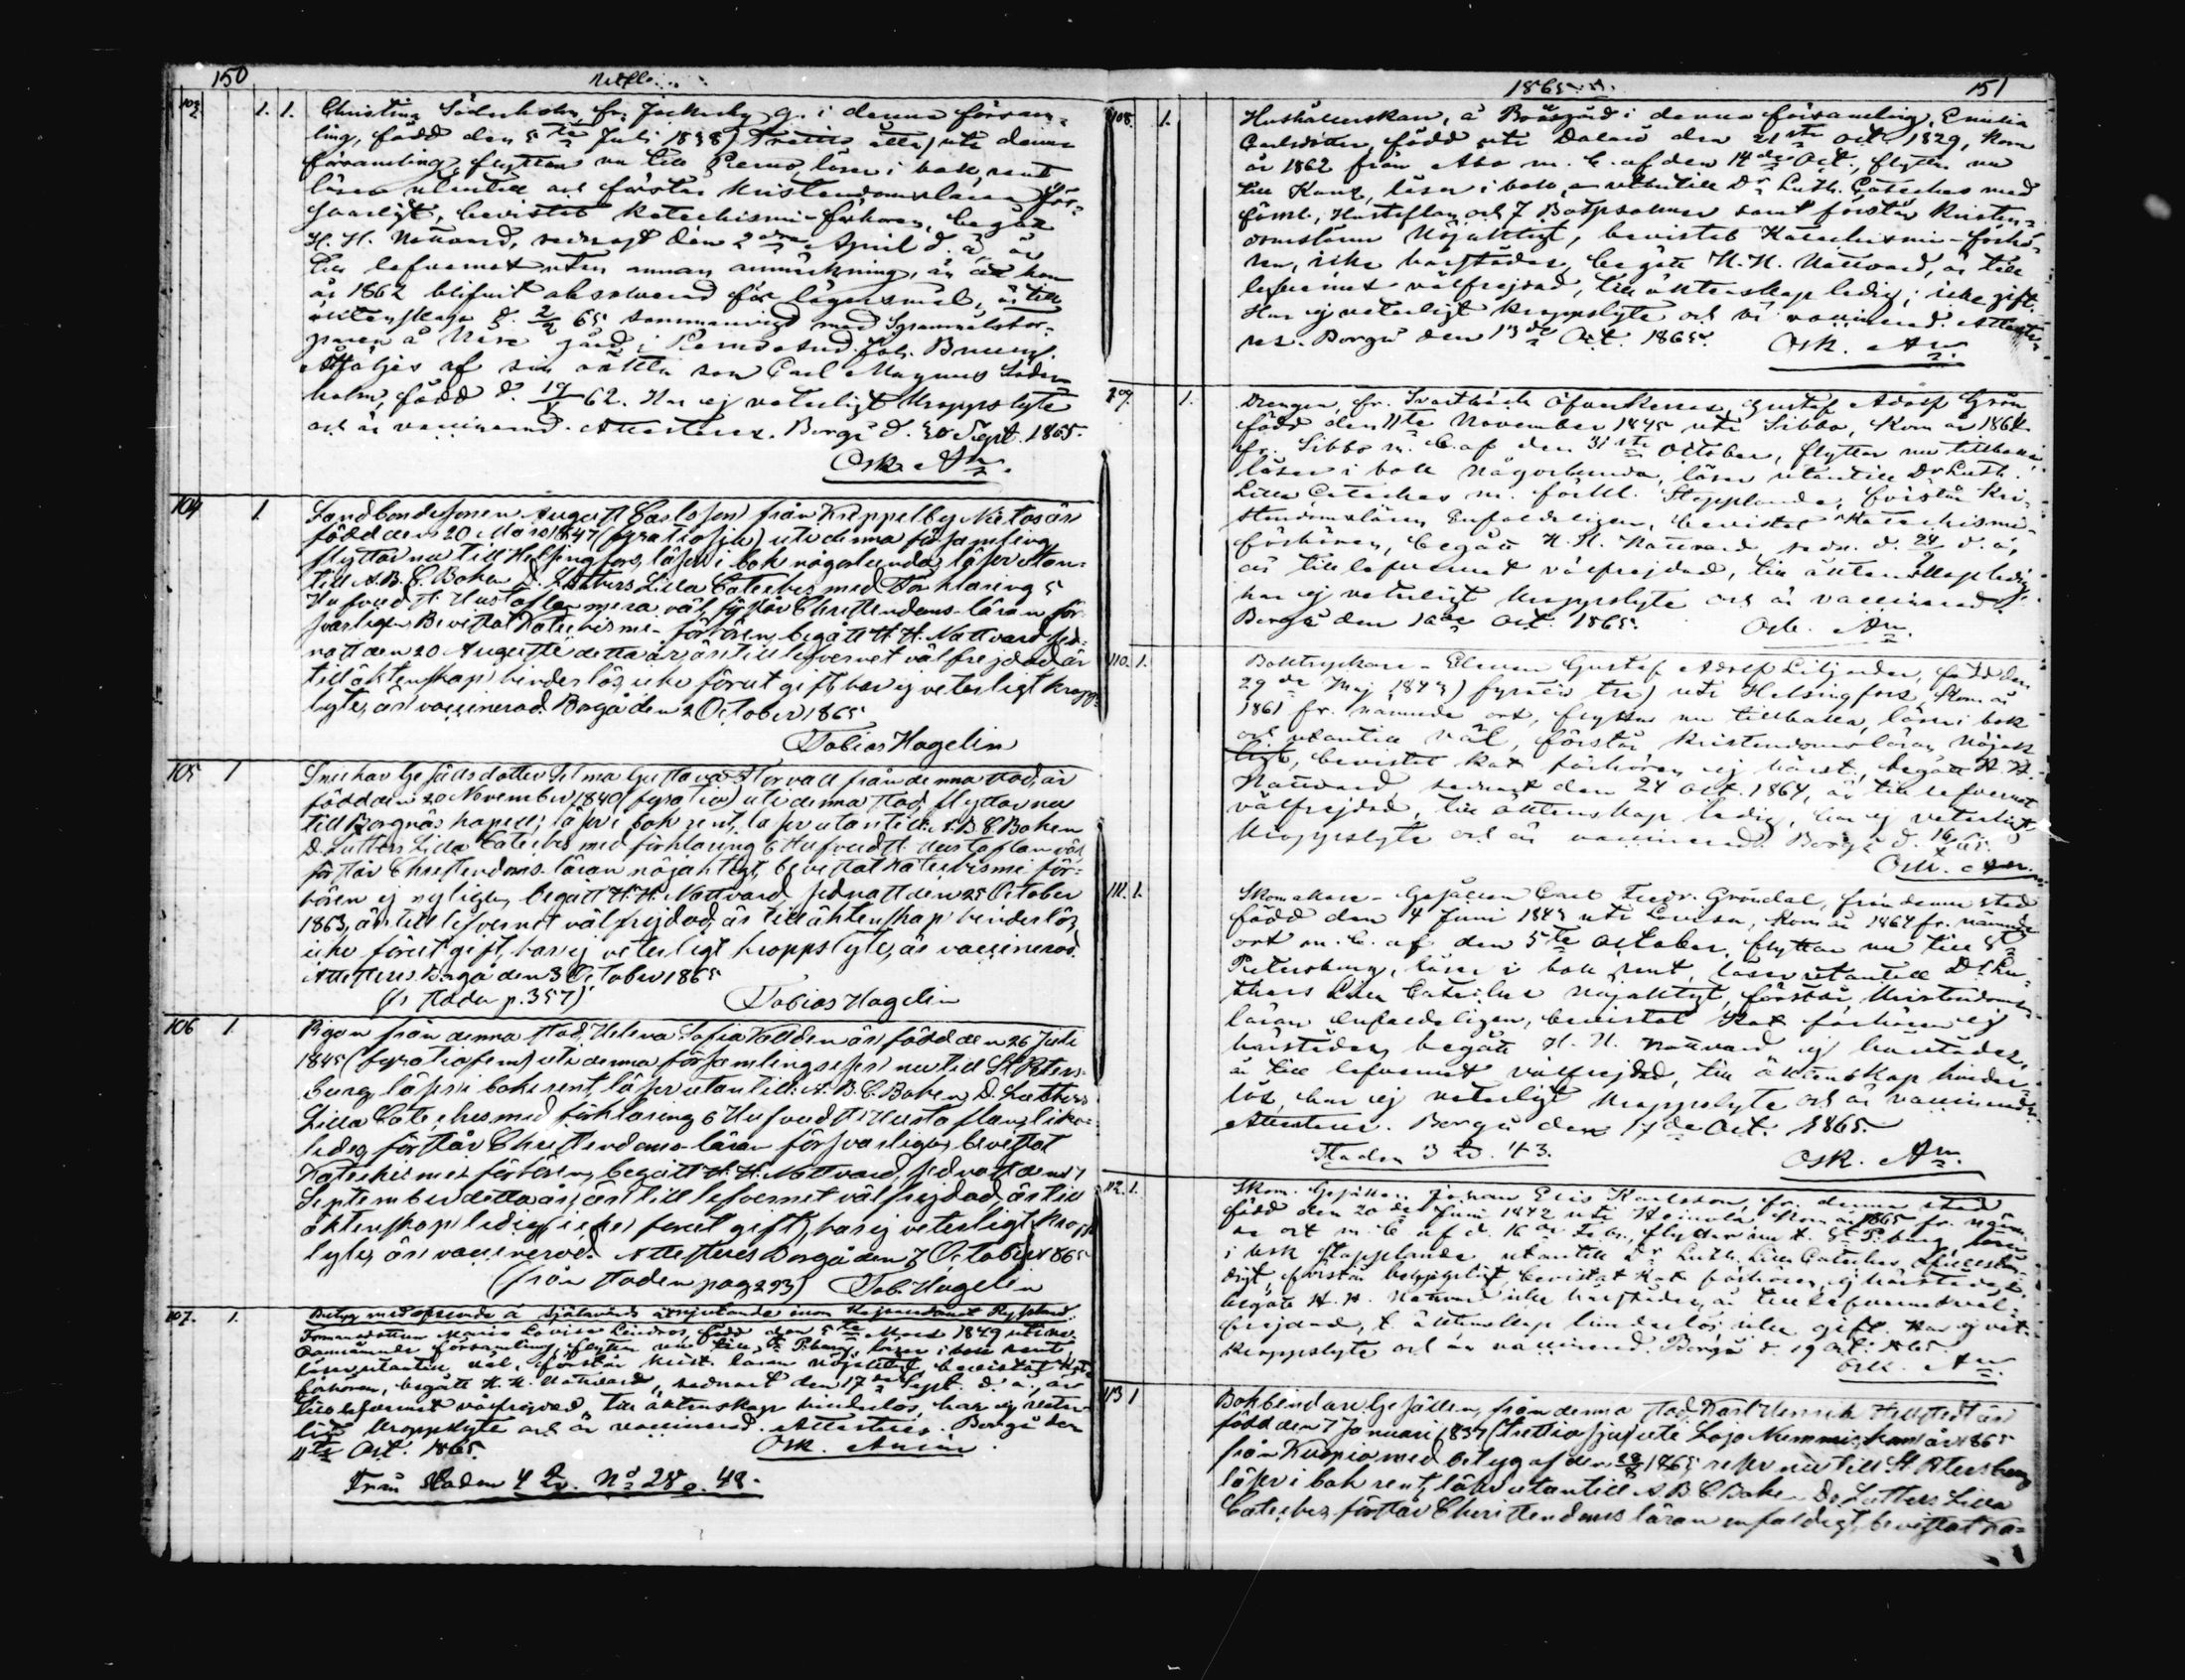 150
Utfl.
103
1. 1.
Christina Söderholm, fr. Jackarby g. i denna försam-
ling, född den 5te Juli 1838 (Trettio åtta) uti denna
församling, flyttar nu till Perno, läser i bok rent
läser utantill och förstår kristendomsläran för-
svarligt, bevistat katechismi-förhören, begått
H. H. Nattvard, sednast den 2dra April d. å., är
till lefvernet utan annan anmärkning, än att hon
år 1862 blifvit absolverad för lägersmål, är till
äktenskap d. 65 sammanvigd med
paren å gård i Perno Joh.
Åtföljes af sin oäkta son Carl Magnus Söder-
holm, född d. 62. Har ej veterligt kroppslyte
och är vaccinerad. Attesteras. Borgå d. 30 Sept. 1865.
Osk. An.
104
1.
Landbondesonen August Carlsson från Kreppelby Nietos är
född den 20 Mars 1847 (fyratiosju) uti denna församling
flyttar nu till Helsingfors, läser i bok någorlunda, läser utan-
till A. B. C. Boken D. Luthers Lilla Cateches med Förklaring 5
Hufvud St. Hustaflan mera väl, förstår Christendoms-läran för-
svarligen Bevistat Katechismi-förhören, begått H. H. Nattvard sed-
nast den 20 Augusti detta år, är till lefvernet välfrejdad, är
till äktenskap hinderlös, icke förut gift, har ej veterligt kropps-
lyte, är vaccinerad. Borgå den 2 October 1865
Tobias Hagelin
105
1
Snickar Gesällsdotter Selma Gustava Horvall från denna stad, är
född den 20 November 1840 (fyratio) uti denna stad, flyttar nu
till Borgnäs kapell; läser i bok rent, läser utantill: A. B. C. Boken
D. Luthers Lilla Cateches med förklaring 6 Hufvud St. Hustaflan väl,
förstår Christendoms-läran nöjaktigt, bevistat Katechismi för-
hören ej nyligen, begått H. H. Nattvard sednast den 25 October
1863, är till lefvernet välfrejdad, är till äktenskap hinderlös,
icke förut gift, har ej veterligt kroppslyte, är vaccinerad.
Attesteras Borgå den 3 October 1865
(fr. staden p. 357)
Tobias Hagelin
106
1.
Pigan från denna stad, Helena Sofia Valldén är född den 26 Juli
1845 (fyratiofem) uti denna församling reser nu till St Peters-
burg, läser i bok rent, läser utantill: A. B. C. Boken, D. Luthers
Lilla Cateches med förklaring 6 Hufvud St. Hustaflan lika-
ledes, förstår Christendoms-läran försvarligen, bevistat
Katechismi-förhören, begått H. H. Nattvard, sednast den 17
September detta år, är till lefvernet välfrejdad, är till
äktenskap ledig (icke förut gift), har ej veterligt kropps-
lyte, är vaccinerad. Attesteras Borgå den 7 October 1865
(från staden pag 293) Tob. Hagelin
107.
1.
Betyg med afseende å själavård åtnjutande inom Kejsaredömet Ryssland.
Maria Lovisa Lindros, född den 5te Mars 1849 uti
församling, flyttar nu till St P.burg, läser i bok rent,
läser utantill väl, förstår krist. läran nöjaktigt, bevistat Kat.
förhören, begått H. H. Nattvard, sednast den 17de Sept. d. å., är
till lefvernet välfrejdad, till äktenskap hinderlös, har ej veter-
ligt kroppslyte och är vaccinerad. Attesteras. Borgå den
11te Oct. 1865. Osk. Anian.
Från Staden 4 Q. No 28 p. 48.
1865
151
108.
1.
Hushållerskan, å Bosgård i denna församling, Emilia
född uti den 21sta Oct. 1829, kom
år 1862 från Åbo m. b. af den 14de Oct., flyttar nu
till läser i bok, utantill Dr Luth. Cateches med
förkl., Hustaflan och 7 Botpsalmer samt förstår kristen-
domsläran nöjaktigt, bevistat Katechismi-förhö-
ren, icke härstädes begått H. H. Nattvard, är till
lefvernet välfrejdad, till äktenskap ledig, icke gift.
Har ej veterligt kroppslyte och är vaccinerad. Atteste-
ras. Borgå den 13de Oct. 1865. Osk. An.
109.
1.
Drengen, fr. Svartbäck Gustaf Adolf Grön
född den 11te November 1845 uti Sibbo, kom år 1864
fr. Sibbo m. b. af den 31sta October, flyttar nu tillbaka,
läser i bok någorlunda, läser utantill Dr Luth.
Lilla Cateches m. förkl. Stapplande, förstår kri-
stendomsläran enfaldeligen, bevistat Katechismi-
förhören, begått H. H. Nattvard sedn. d. d. å.,
är till lefvernet välfrejdad, till äktenskap ledig,
har ej veterligt kroppslyte och är vaccinerad.
Borgå den 16de Oct. 1865. Osk. An.
110.
1.
Boktryckare-Eleven Gustaf Adolf Liljander, född den
29de Maj 1843 (fyratio tre) uti Helsingfors, kom år
1861 fr. nämnde ort, flyttar nu tillbaka, läser i bok
och utantill väl, förstår kristendomsläran nöjak-
tigt, bevistat kat. förhören ej härst., begått H. H.
Nattvard, sednast den 24 Oct. 1864, är till lefvernet
välfrejdad, till äktenskap ledig, har ej veterligt
kroppslyte och är vaccinerad. Borgå d. 65.
Osk. An.
111.
1.
Skomakare-Gesällen Carl Fredr. Gröndal, från denna stad
född den 4 Juni 1843 uti Lovisa, kom år 1864 fr. nämnde
ort m. b. af den 5te October, flyttar nu till St
Petersburg, läser i bok rent, läser utantill Dr Lu-
thers Lilla Cateches nöjaktigt, förstår kristendoms-
läran enfaldeligen, bevistat Kat. förhören ej
härstädes, begått H. H. Nattvard ej härstädes,
är till lefvernet välfrejdad, till äktenskap hinder-
lös, har ej veterligt kroppslyte och är vaccinerad.
Attesteras. Borgå den 17de Oct. 1865.
Staden 3 Q. 43. Osk. An.
112.
1.
Skom. Gesällen Johan Elis Karlsson, fr. denna stad
född den 20de Juni 1842 uti Heinola, kom år 1865 fr. nämn-
de ort m. b. af d. 16de Febr., flyttar nu t. St P.burg, läser
i bok stapplande, utantill Dr Luth. Lilla Cateches ofullstän-
digt, förstår bevistat Kat. förhören ej härstädes,
begått H. H. Nattvard icke härstädes, är till lefvernet väl-
frejdad, t. äktenskap hinderlös, icke gift. Har ej vet.
kroppslyte och är vaccinerad. Borgå d. 19 Oct. 1865.
Osk. An.
113
1
Bokbindare Gesällen från denna stad, Karl Henrik Hellstedt är
född den 7 Januari 1837 (trettiosju) uti Lojo Nummis, kom år 1865
från Kuopio med betyg af den 1865 reser nu till St Petersburg
läser i bok rent, läser utantill A. B. C. Boken Dr. Luthers Lilla
Cateches, förstår Christendoms läran enfaldigt, bevistat Ka-